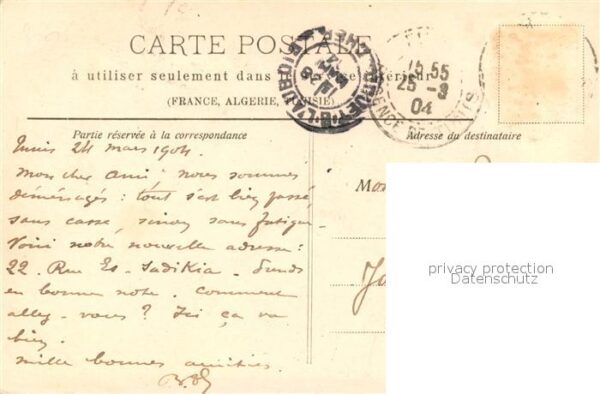 CARTE POSTALE
à utiliser seulement dans le service intérieur
(FRANCE, ALGERIE, TUNISIE)
Partie réservée à la correspondance
Adresse du destinataire
15 55
25 - 3
04
REGENCE DE TUNIS
Tunis 24 mars 1904
Mon cher Ami : nous sommes
déménagés : tout s'est bien passé
sans casse, sinon sans fatigue.
Voici notre nouvelle adresse :
22. Rue Es-Sadikia. Prends
en bonne note. Comment
allez-vous ? Ici ça va
bien.
Mille bonnes amitiés
Mon
privacy protection
Datenschutz